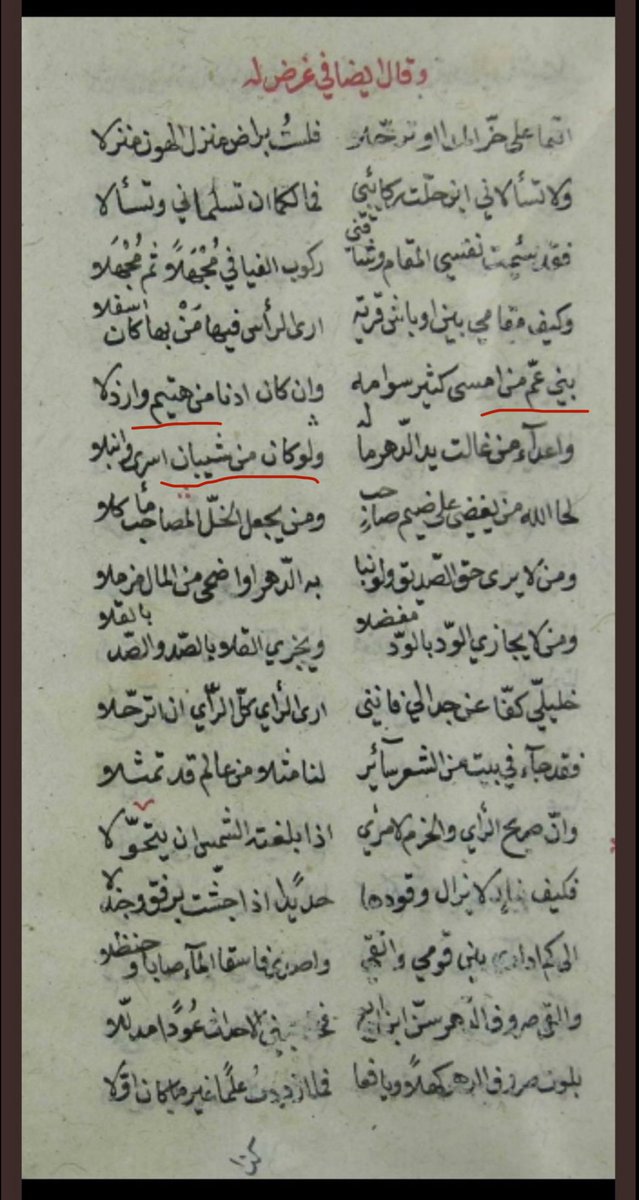 وقال ايضا في غرض له
اقيما على حرّ او ترحّلا فلستُ براض منزل الهون منزلا
ولا تسألاني اين حلّت ركائبي فما لكما ان تسلماني وتسألا
فقد سئمت نفسي المقام وشاقني ركوب الفيافي مُجْهَلاً ثم مُجْهَلا
وكيف مقامي بين اوباش قرية ارى الرأس فيها مَنْ بها كان اسفلا
بني عمّ من امسى كثير سوامه وان كان ادنا من هتيم وارذلا
واعدآء من غالت يد الدّهر ماله ولو كان من شيبان اسرى وانبلا
لحا الله من يغضي على ضيم صاحب ومن يجعل الخلّ المصاحب مأكلا
ومن لا يرى حق الصّديق ولو نبا به الدّهر او اضحى من المال مرملا
ومن لا يجازي الودّ بالودّ مفضلا ويجزي القلا بالصّد والصّد بالقلا
خليلّي كفّا عن جدالي فانني ارى الرأي كلّ الرّأي ان اترحّلا
فقد جآء في بيت من الشعر سآئر لنا مثلا من عالم قد تمثلا
وانّ صريح الرأي والحزم لامرئ اذا بلغته الشمس ان يتحوّلا
فكيف بنار لا يزال وقودها اذا
الى كم اداري بني قومي واتقي فاسقا المآء صابا وحنظلا
والقى صروف الدّهر عُودًا مدلّلا
بلوت صروف الدهر كهلاً ويافعا فما ازددتُ علمًا غير ما كان اوّلا